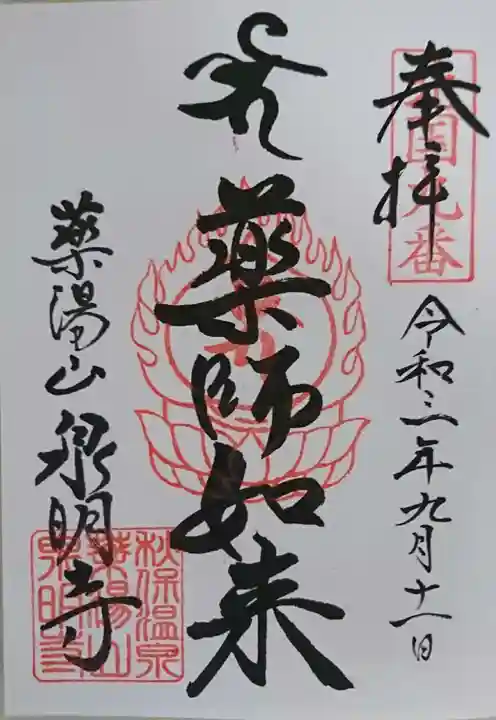 奉拝
国九番
令和三年九月十一日
薬師如来
薬湯山 泉明寺
秋保温泉
薬湯山
泉明寺